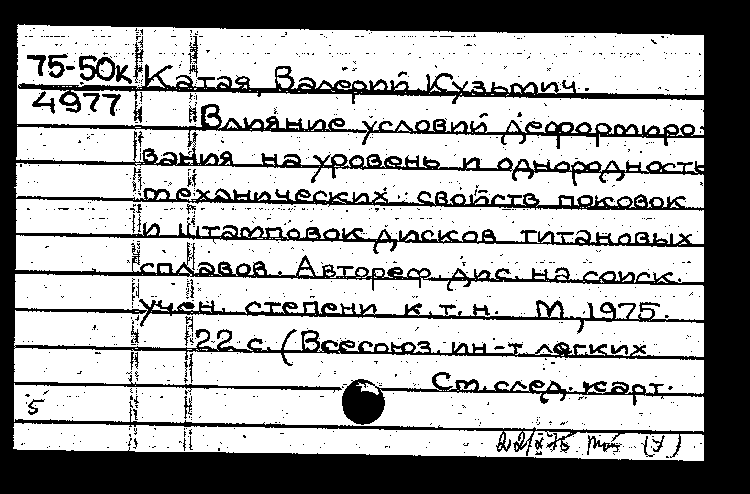 75-50к Катая, Валерий Кузьмич.
4977
Влияние условий деформиро-
вания на уровень и однородность
механических свойств поковок
и штамповок дисков титановых
сплавов. Автореф. дис. на соиск.
учен. степени к.т.н. М., 1975.
22 с. (Всесоюз. ин-т легких
См. след. карт.
5
22/X 75